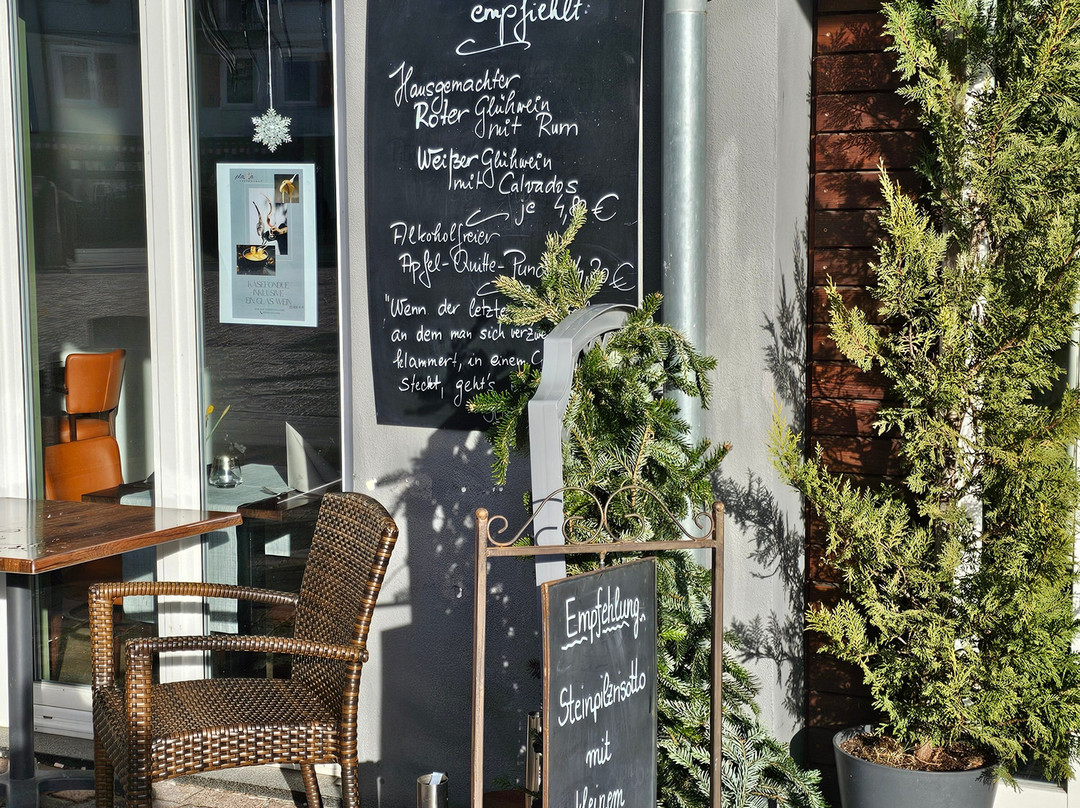 empfiehlt:
Hausgemachter
Roter Glühwein
mit Rum
Weißer Glühwein
mit Calvados
je 4,80 €
Alkoholfreier
Apfel-Quitte-Punch 4,20 €
"Wenn der letzte
an dem man sich
klammert, in einem
steckt, geht's
KÄSEFONDUE
INKLUSIVE
EIN GLAS WEIN
Empfehlung
Steinpilzrisotto
mit
kleinem